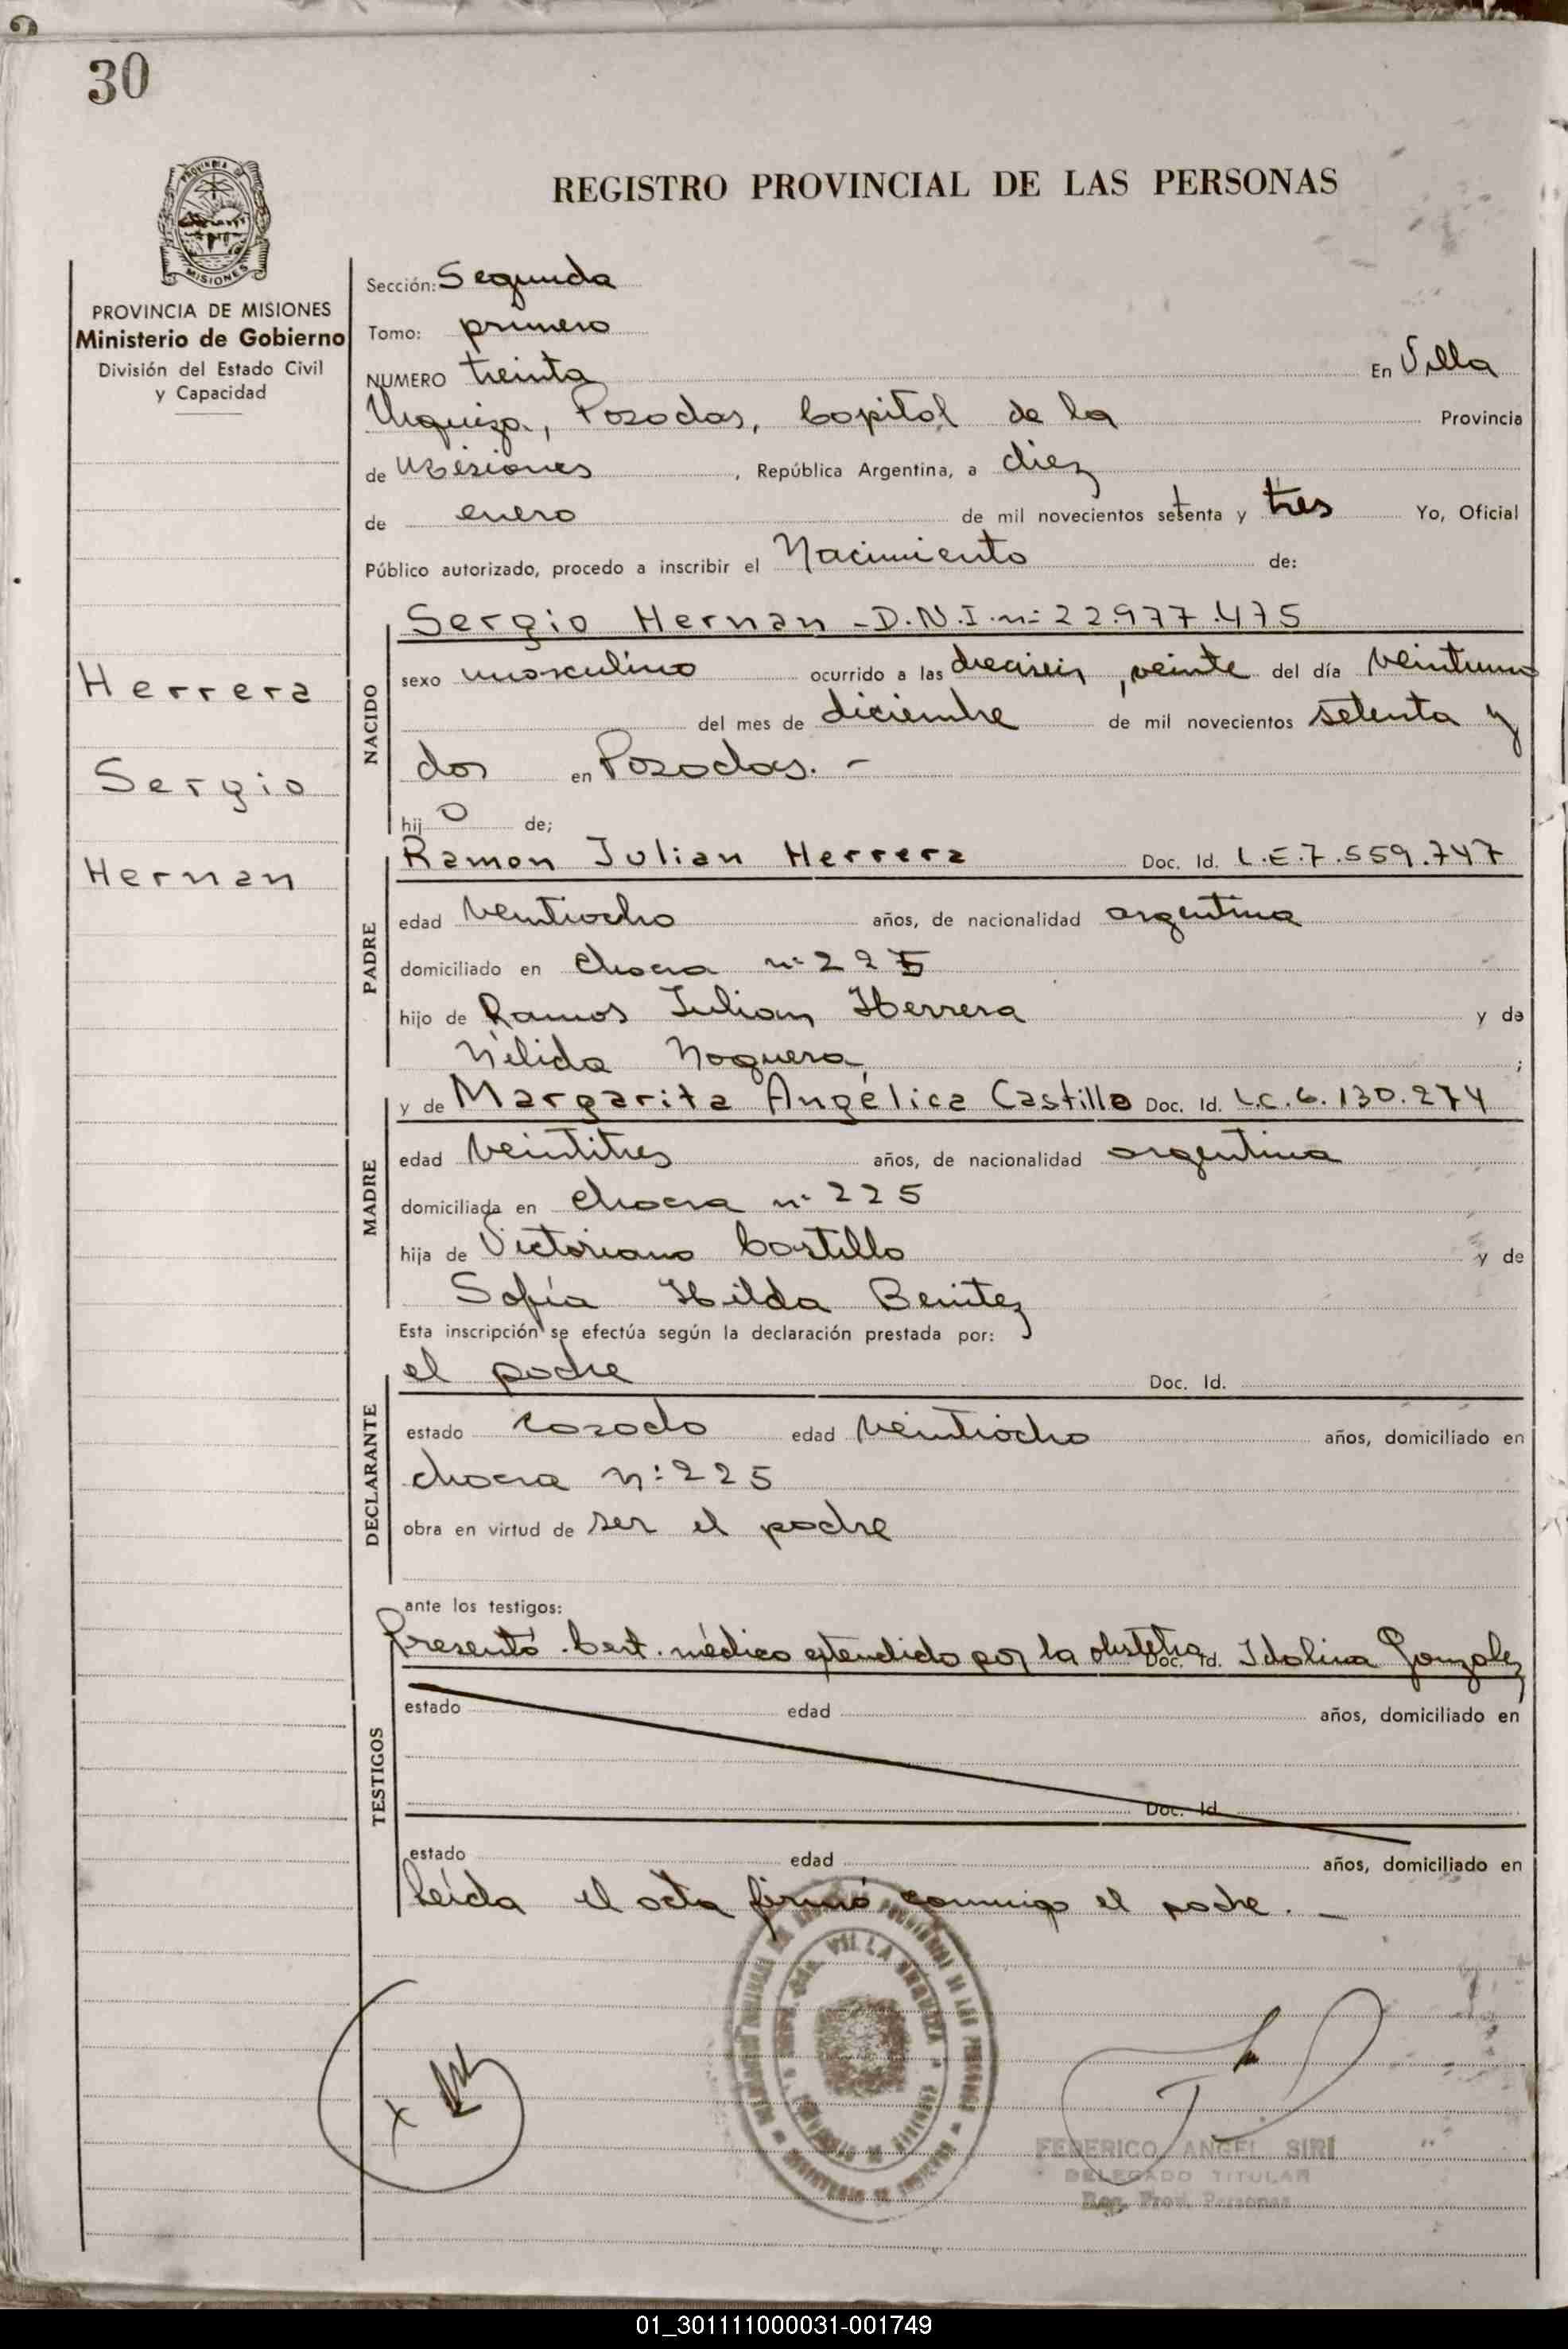 30
PROVINCIA
MISIONES
PROVINCIA DE MISIONES
Ministerio de Gobierno
División del Estado Civil
y Capacidad
Herrera
Sergio
Hernan
REGISTRO PROVINCIAL DE LAS PERSONAS
Sección: Segunda
Tomo: primero
NUMERO treinta En Villa
Urquiza, Posadas, Capital de la Provincia
de Misiones, República Argentina, a diez
de enero de mil novecientos setenta y tres Yo, Oficial
Público autorizado, procedo a inscribir el Nacimiento de:
NACIDO
Sergio Hernan - D.N.I. n: 22.977.475
sexo masculino ocurrido a las dieciseis, veinte del día veintiuno
del mes de diciembre de mil novecientos setenta y
dos en Posadas. -
hijo de;
PADRE
Ramon Julian Herrera Doc. Id. L.E. 7.559.747
edad veintiocho años, de nacionalidad argentina
domiciliado en chacra n: 225
hijo de Ramos Julian Herrera y de
Nélida Noguera;
MADRE
y de Margarita Angélica Castillo Doc. Id. L.C. 6.130.274
edad veintitres años, de nacionalidad argentina
domiciliada en chacra n: 225
hija de Victoriano Castillo y de
Sofía Hilda Benitez
Esta inscripción se efectúa según la declaración prestada por:
DECLARANTE
el padre Doc. Id.
estado casado edad veintiocho años, domiciliado en
chacra n: 225
obra en virtud de ser el padre
ante los testigos:
TESTIGOS
Presentó Cert. médico extendido por la obstetra Doc. Id. Idolina Gonzalez
estado edad años, domiciliado en
Doc. Id.
estado edad años, domiciliado en
leída el acta firmó conmigo el padre. -
VILLA URQUIZA
FEDERICO ANGEL SIRI
DELEGADO TITULAR
Reg. Prov. Personas
01_301111000031-001749